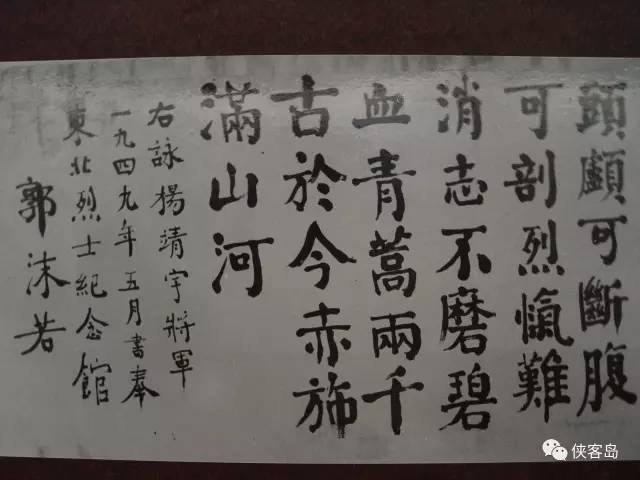 頭顱可斷腹
可剖烈愾難
消志不磨碧
血青蒿兩千
古於今赤旆
滿山河
右詠楊靖宇將軍
一九四九年五月書奉
東北烈士紀念館
郭沫若
侠客岛